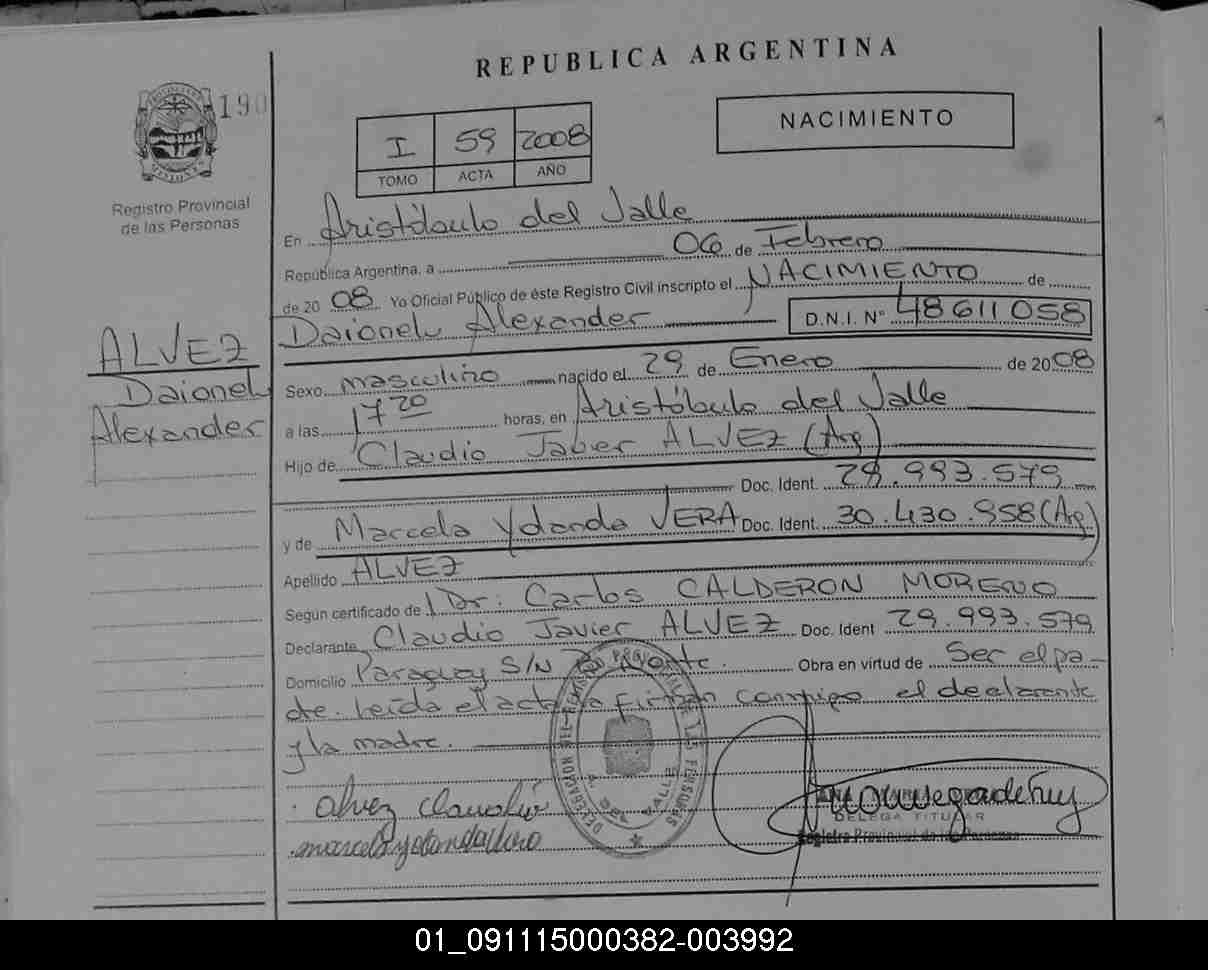 REPUBLICA ARGENTINA
190
NACIMIENTO
I 59 2008
TOMO ACTA AÑO
Registro Provincial
de las Personas
En Aristóbulo del Valle
República Argentina, a 06 de Febrero
de 2008 Yo Oficial Público de éste Registro Civil inscripto el NACIMIENTO de
Daionel Alexander D.N.I. N° 48611058
ALVEZ
Daionel
Alexander
Sexo masculino nacido el 29 de Enero de 2008
a las 17 20 horas, en Aristóbulo del Valle
Hijo de Claudio Javier ALVEZ (Arg)
Doc. Ident. 29.993.579
y de Marcela Yolanda VERA Doc. Ident. 30.430.958 (Arg)
Apellido ALVEZ
Según certificado de Dr: Carlos CALDERON MORENO
Declarante Claudio Javier ALVEZ Doc. Ident 29.993.579
Domicilio Paraguay S/N Obra en virtud de Ser el pa-
dre. Leída el acta la firman conmigo el declarante
y la madre.
alvez claudio
marcela yolanda Vera
DELEGA TITULAR
Registro Provincial de las Personas
01_091115000382-003992